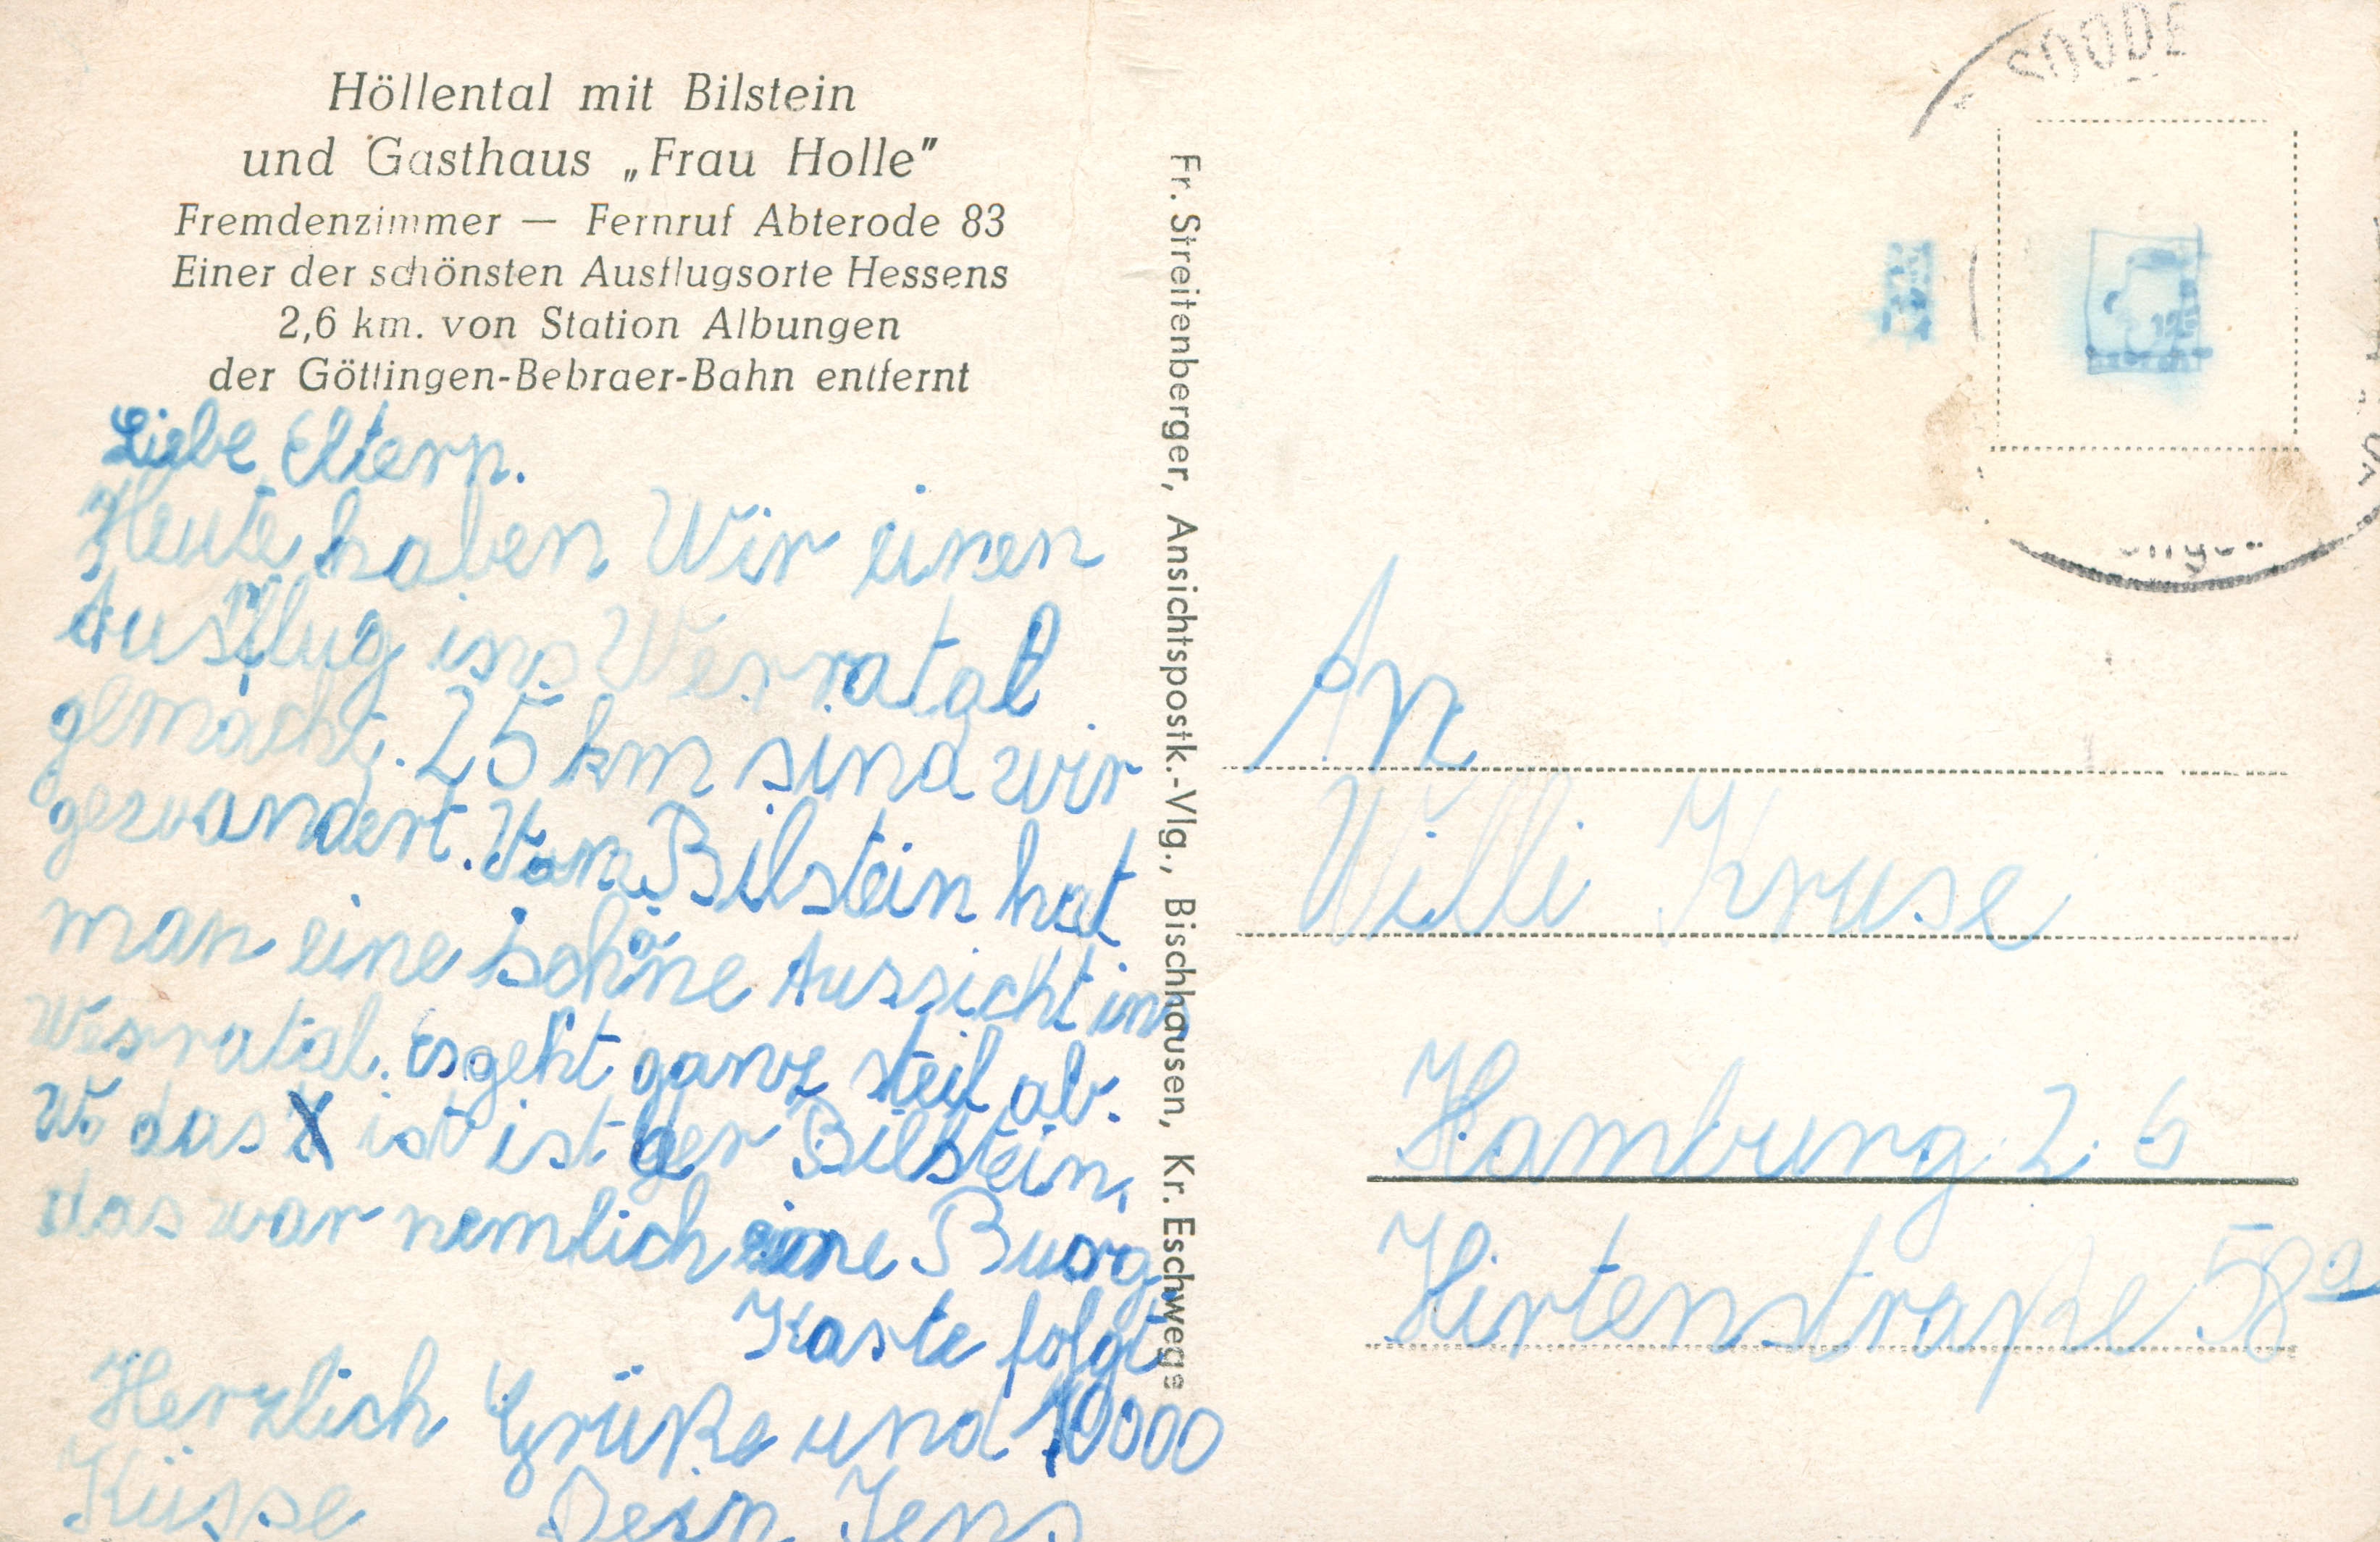 Höllental mit Bilstein
und Gasthaus „Frau Holle"
Fremdenzimmer — Fernruf Abterode 83
Einer der schönsten Ausflugsorte Hessens
2,6 km. von Station Albungen
der Göttingen-Bebraer-Bahn entfernt
Liebe Eltern.
Heute haben Wir einen
Ausflug ins Werratal
gemacht. 25 km sind wir
gewandert. Vom Bilstein hat
man eine schöne Aussicht ins
Werratal. Es geht ganz steil ab.
Wo das X ist ist der Bilstein,
das war nemlich eine Burg
Kaste folgt
Herzlich Grüße und 10000
Küsse Dein Jens
Fr. Streitenberger, Ansichtspostk.-Vlg., Bischhausen, Kr. Eschwege
SOODE
An
Willi Kruse
Hamburg 26
Hirtenstraße 58a